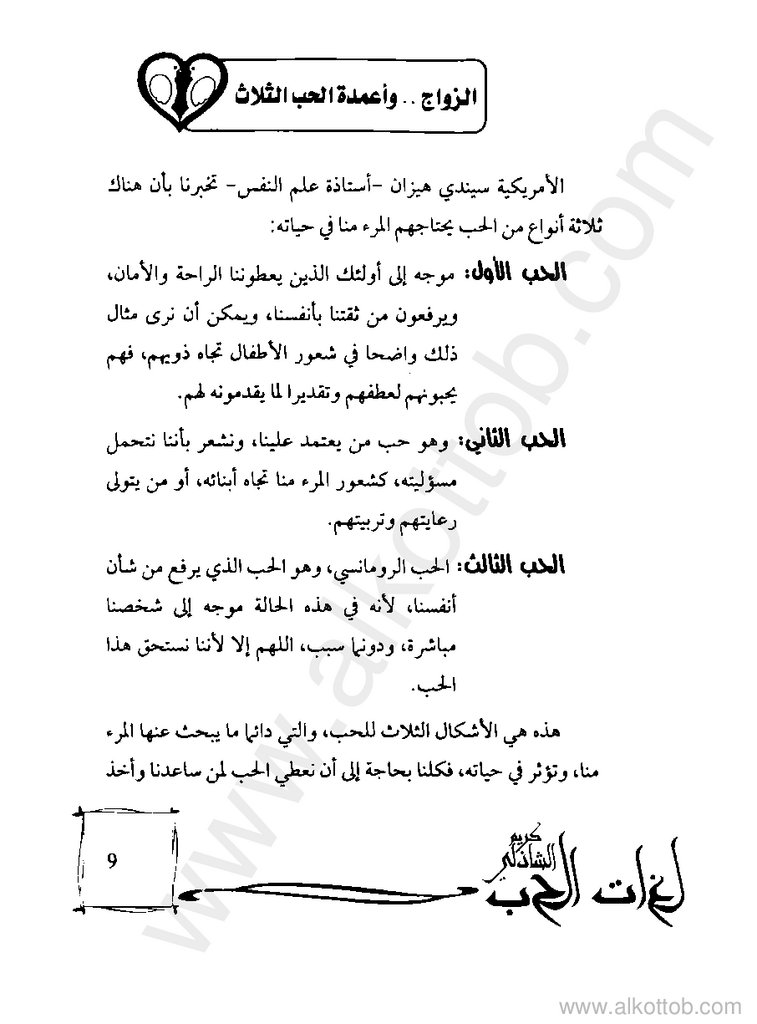 الزواج .. وأعمدة الحب الثلاث
الأمريكية سيندي هيزان -أستاذة علم النفس- تخبرنا بأن هناك
ثلاثة أنواع من الحب يحتاجهم المرء منا في حياته:
الحب الأول: موجه إلى أولئك الذين يعطوننا الراحة والأمان،
ويرفعون من ثقتنا بأنفسنا، ويمكن أن نرى مثال
ذلك واضحا في شعور الأطفال تجاه ذويهم، فهم
يحبونهم لعطفهم وتقديرا لما يقدمونه لهم.
الحب الثاني: وهو حب من يعتمد علينا، ونشعر بأننا نتحمل
مسؤليته، كشعور المرء منا تجاه أبنائه، أو من يتولى
رعايتهم وتربيتهم.
الحب الثالث: الحب الرومانسي، وهو الحب الذي يرفع من شأن
أنفسنا، لأنه في هذه الحالة موجه إلى شخصنا
مباشرة، ودونما سبب، اللهم إلا لأننا نستحق هذا
الحب.
هذه هي الأشكال الثلاث للحب، والتي دائما ما يبحث عنها المرء
منا، وتؤثر في حياته، فكلنا بحاجة إلى أن نعطي الحب لمن ساعدنا وأخذ
كريم
الشاذلي
لغات الحب
9
www.alkottob.com
www.alkottob.com